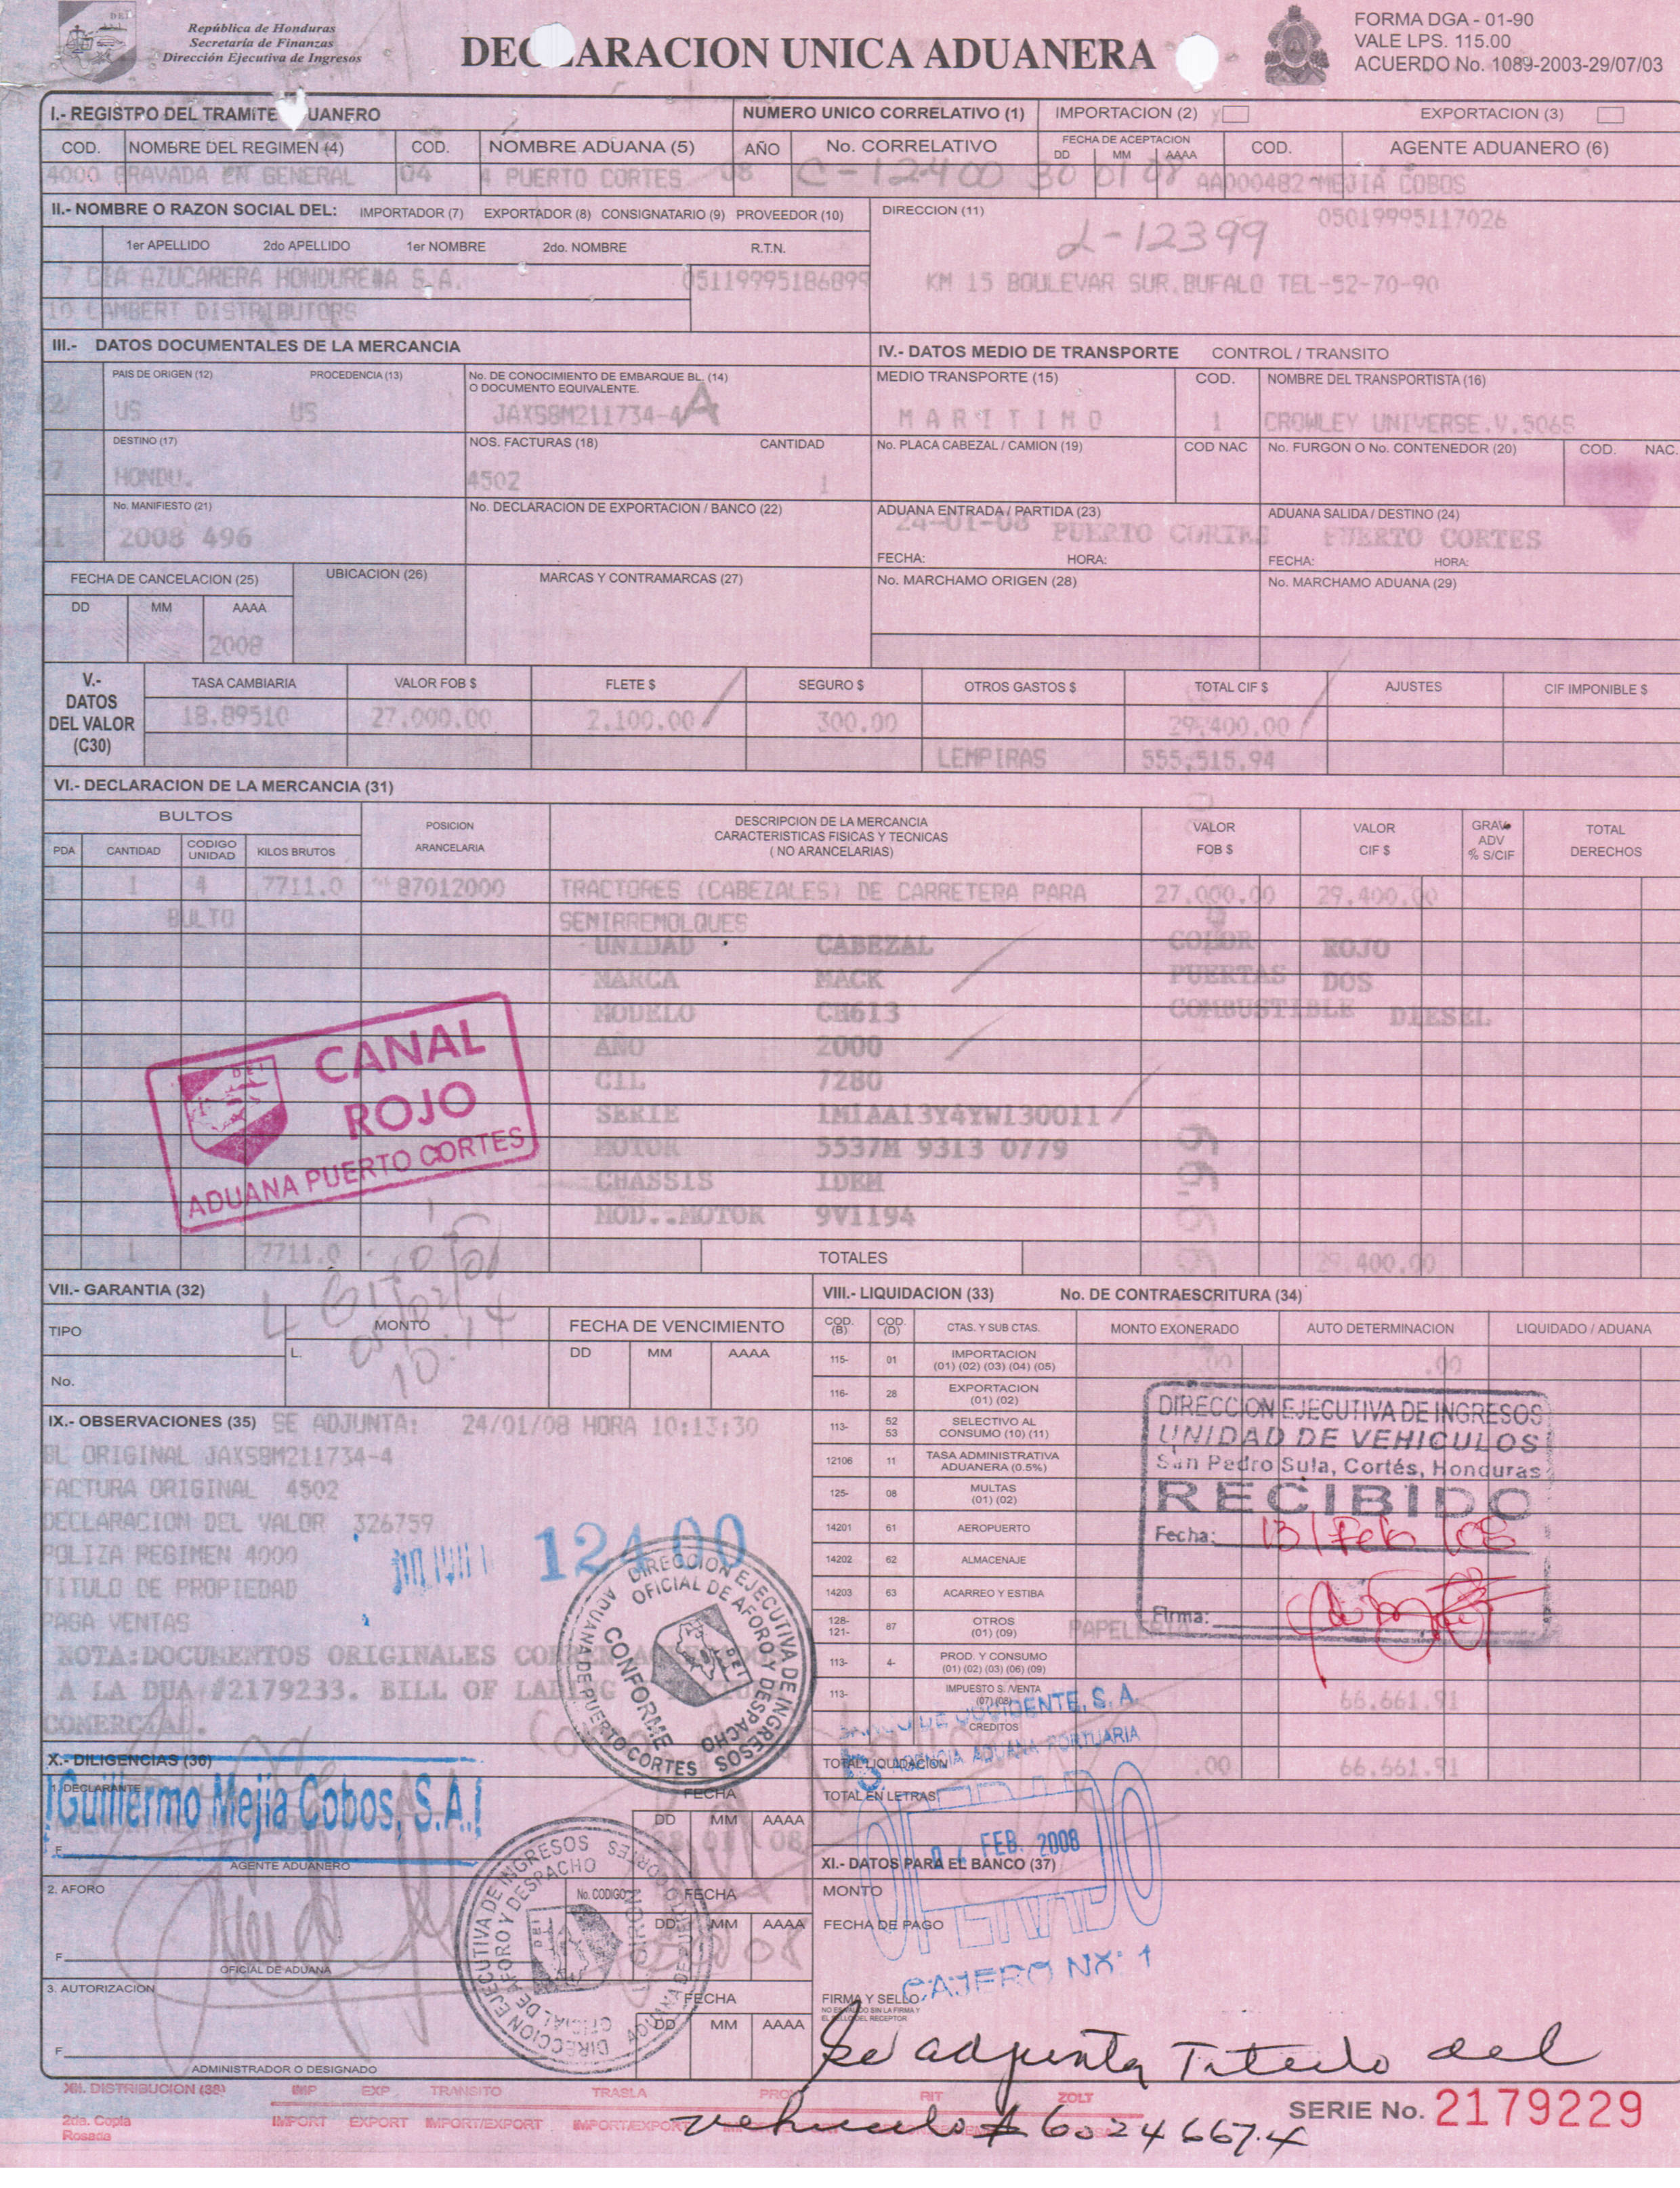 DEI
República de Honduras
Secretaría de Finanzas
Dirección Ejecutiva de Ingresos
DECLARACION UNICA ADUANERA
FORMA DGA - 01-90
VALE LPS. 115.00
ACUERDO No. 1089-2003-29/07/03
I.- REGISTRO DEL TRAMITE ADUANERO
NUMERO UNICO CORRELATIVO (1)
IMPORTACION (2)
EXPORTACION (3)
COD. NOMBRE DEL REGIMEN (4) COD. NOMBRE ADUANA (5) AÑO No. CORRELATIVO FECHA DE ACEPTACION DD MM AAAA COD. AGENTE ADUANERO (6)
4000 GRAVADA EN GENERAL 04 4 PUERTO CORTES 08 C-12400 30 01 08 AA000482 MEJIA COBOS
II.- NOMBRE O RAZON SOCIAL DEL: IMPORTADOR (7) EXPORTADOR (8) CONSIGNATARIO (9) PROVEEDOR (10) DIRECCION (11)
05019995117026
L-12399
1er APELLIDO 2do APELLIDO 1er NOMBRE 2do. NOMBRE R.T.N.
7 CIA AZUCARERA HONDUREÑA S.A. 05119995186899 KM 15 BOULEVAR SUR.BUFALO TEL-52-70-90
10 LAMBERT DISTRIBUTORS
III.- DATOS DOCUMENTALES DE LA MERCANCIA
IV.- DATOS MEDIO DE TRANSPORTE CONTROL / TRANSITO
PAIS DE ORIGEN (12) PROCEDENCIA (13) No. DE CONOCIMIENTO DE EMBARQUE BL. (14) O DOCUMENTO EQUIVALENTE. MEDIO TRANSPORTE (15) COD. NOMBRE DEL TRANSPORTISTA (16)
12 US US JAXS8M211734-4 A MARITIMO 1 CROWLEY UNIVERSE.V.5065
DESTINO (17) NOS. FACTURAS (18) CANTIDAD No. PLACA CABEZAL / CAMION (19) COD NAC No. FURGON O No. CONTENEDOR (20) COD. NAC.
17 HONDU. 4502 1
No. MANIFIESTO (21) No. DECLARACION DE EXPORTACION / BANCO (22) ADUANA ENTRADA / PARTIDA (23) ADUANA SALIDA / DESTINO (24)
21 2008 496 24-01-08 PUERTO CORTES PUERTO CORTES
FECHA: HORA: FECHA: HORA:
FECHA DE CANCELACION (25) UBICACION (26) MARCAS Y CONTRAMARCAS (27) No. MARCHAMO ORIGEN (28) No. MARCHAMO ADUANA (29)
DD MM AAAA
2008
V.- DATOS DEL VALOR (C30)
TASA CAMBIARIA VALOR FOB $ FLETE $ SEGURO $ OTROS GASTOS $ TOTAL CIF $ AJUSTES CIF IMPONIBLE $
18.89510 27.000.00 2.100.00 300.00 29.400.00
LEMPIRAS 555.515.94
VI.- DECLARACION DE LA MERCANCIA (31)
BULTOS
PDA CANTIDAD CODIGO UNIDAD KILOS BRUTOS POSICION ARANCELARIA DESCRIPCION DE LA MERCANCIA CARACTERISTICAS FISICAS Y TECNICAS ( NO ARANCELARIAS) VALOR FOB $ VALOR CIF $ GRAV. ADV % S/CIF TOTAL DERECHOS
1 1 4 7711.0 87012000 TRACTORES (CABEZALES) DE CARRETERA PARA 27.000.00 29.400.00
BULTO SEMIRREMOLQUES
UNIDAD CABEZAL COLOR ROJO
MARCA MACK PUERTAS DOS
MODELO CH613 COMBUSTIBLE DIESEL
AÑO 2000
CIL 7280
SERIE 1M1AA13Y4YW130011
MOTOR 5537M 9313 0779
CHASSIS IDEM
MOD..MOTOR 9V1194
CANAL
ROJO
ADUANA PUERTO CORTES
1 7711.0 TOTALES 29.400.00
VII.- GARANTIA (32)
VIII.- LIQUIDACION (33) No. DE CONTRAESCRITURA (34)
TIPO MONTO FECHA DE VENCIMIENTO
L. DD MM AAAA
No.
COD. (B) COD. (D) CTAS. Y SUB CTAS. MONTO EXONERADO AUTO DETERMINACION LIQUIDADO / ADUANA
115- 01 IMPORTACION (01) (02) (03) (04) (05) .00 .00
116- 28 EXPORTACION (01) (02)
113- 52 53 SELECTIVO AL CONSUMO (10) (11)
12106 11 TASA ADMINISTRATIVA ADUANERA (0.5%)
125- 08 MULTAS (01) (02)
14201 61 AEROPUERTO
14202 62 ALMACENAJE
14203 63 ACARREO Y ESTIBA
128- 121- 87 OTROS (01) (09) PAPELERIA
113- 4- PROD. Y CONSUMO (01) (02) (03) (06) (09)
113- IMPUESTO S. /VENTA (07) (08) 66.661.91
CREDITOS
TOTAL LIQUIDACION .00 66.661.91
TOTAL EN LETRAS
DIRECCION EJECUTIVA DE INGRESOS
UNIDAD DE VEHICULOS
San Pedro Sula, Cortés, Honduras
RECIBIDO
Fecha: 13/Feb/08
Firma:
IX.- OBSERVACIONES (35) SE ADJUNTA: 24/01/08 HORA 10:13:30
BL ORIGINAL JAXS8M211734-4
FACTURA ORIGINAL 4502
DECLARACION DEL VALOR 326759
POLIZA REGIMEN 4000
TITULO DE PROPIEDAD
PAGA VENTAS
NOTA:DOCUMENTOS ORIGINALES
A LA DUA #2179233. BILL OF LADING
COMERCIAL.
12400
DIRECCION EJECUTIVA DE INGRESOS
OFICIAL DE AFORO Y DESPACHO
CONFORME
ADUANA DE PUERTO CORTES
BANCO DE OCCIDENTE, S. A.
AGENCIA ADUANA PORTUARIA
FEB. 2008
CAJERO
X.- DILIGENCIAS (36)
1. DECLARANTE FECHA
Guillermo Mejia Cobos, S.A.
DD MM AAAA
F. AGENTE ADUANERO
2. AFORO No. CODIGO FECHA
DD MM AAAA
F. OFICIAL DE ADUANA
3. AUTORIZACION FECHA
DD MM AAAA
F. ADMINISTRADOR O DESIGNADO
DIRECCION EJECUTIVA DE INGRESOS
OFICIAL DE AFORO Y DESPACHO
XI.- DATOS PARA EL BANCO (37)
MONTO
FECHA DE PAGO
FIRMA Y SELLO
NO ES VALIDO SIN LA FIRMA Y
EL SELLO DEL RECEPTOR
Se adjunta Titulo del
vehiculo # 6024667.4
XII. DISTRIBUCION (38) IMP EXP TRANSITO TRASLA RIT ZOLT
2da. Copia Rosada IMPORT EXPORT IMPORT/EXPORT IMPORT/EXPORT
SERIE No. 2179229